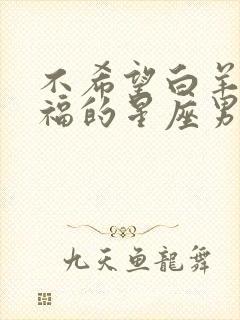 不希望白羊
福的星座男
九天鱼龙舞